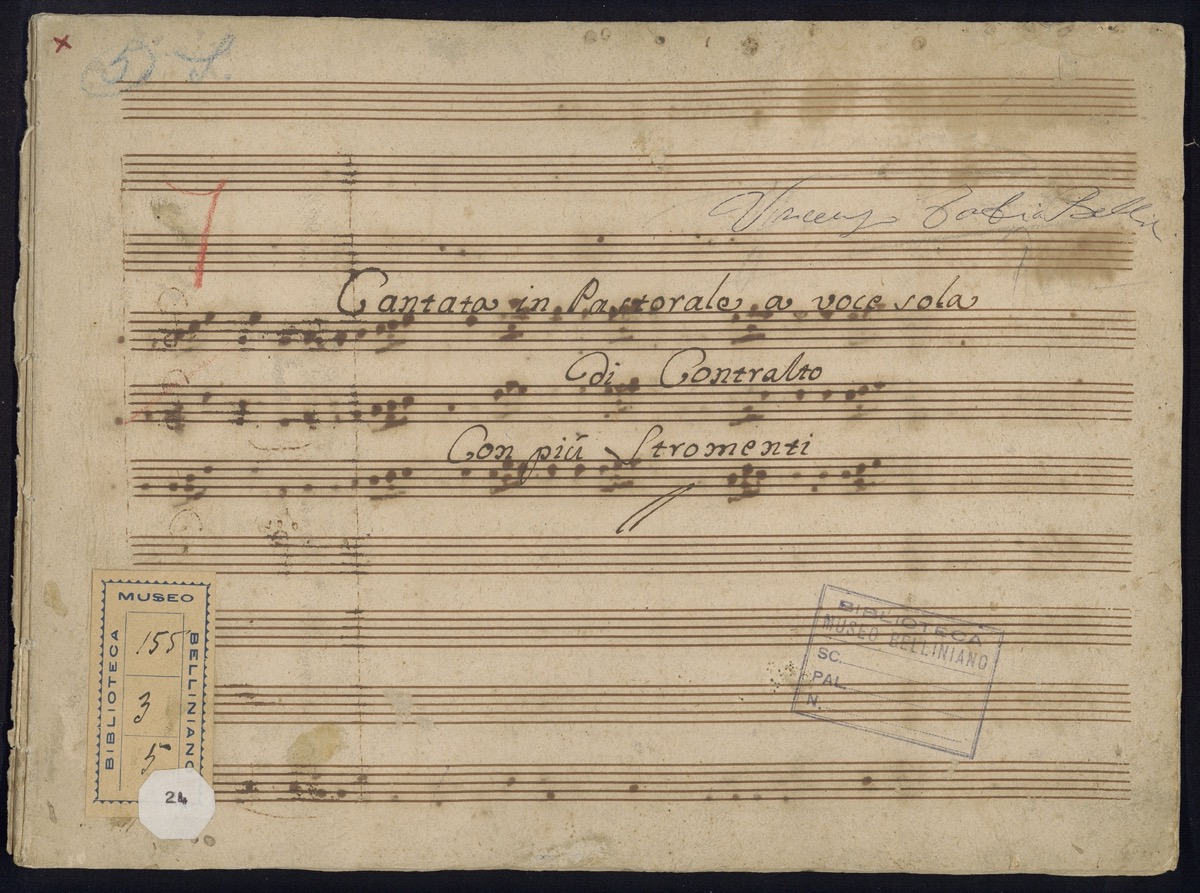 5) S.
7
Vincenzo Tobia Bellini
Cantata in Pastorale a voce sola
Di Contralto
Con più Stromenti
MUSEO
BIBLIOTECA
BELLINIANO
155
3
5
24
BIBLIOTECA
MUSEO BELLINIANO
SC.
PAL.
N.